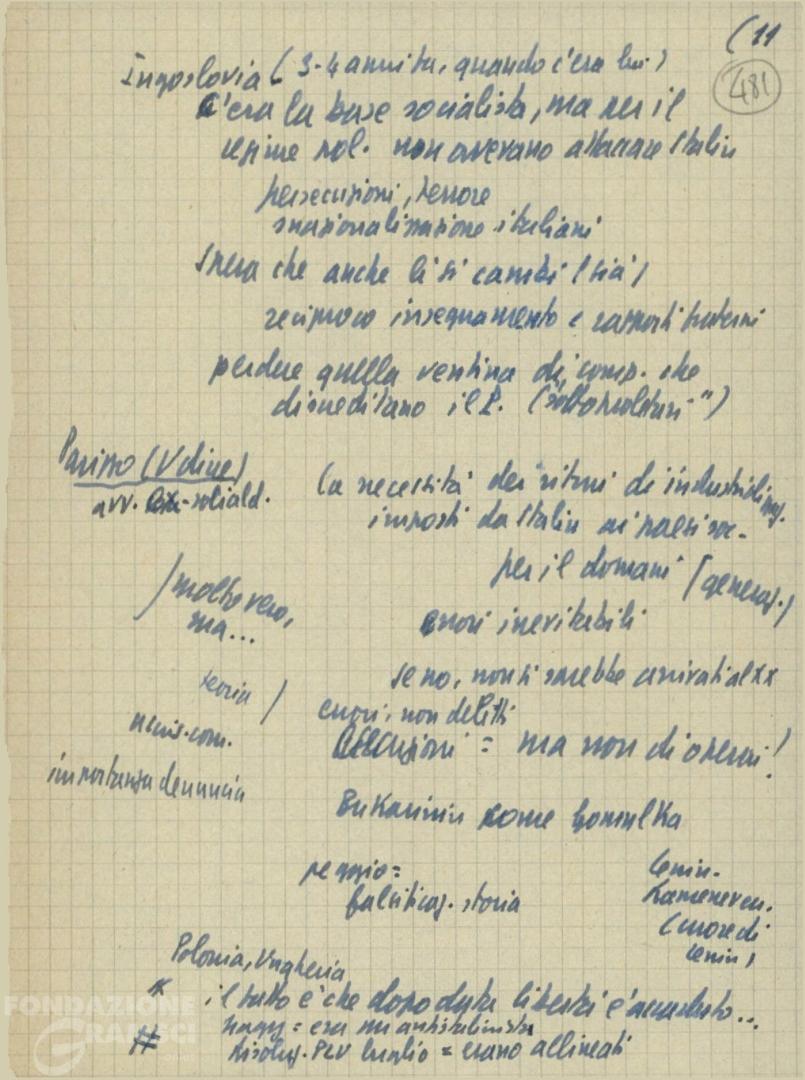 (11
481
Iugoslavia (3-4 anni fa, quando c'era lui)
C'era la base socialista, ma per il
regime pol. non dovevano attaccare Stalin
persecuzioni, terrore
snazionalizzazione italiani
Spera che anche lì si cambi (già)
reciproco insegnamento e rapporti fraterni
perdere quella ventina di comp. che
discreditano il P. ("sottoproletari")
(Udine)
avv. -sociald.
la necessità dei ritmi di industrializzaz.
imposti da Stalin ai paesi soc.
per il domani (generaz.)
/molto vero,
ma...
errori inevitabili
se no, non si sarebbe arrivati al XX
teoria /
errori, non delitti
com.
Esecuzioni = ma non di operai!
importanza denuncia
Bukarinin come Gomulka
peggio =
falsificaz. storia
Lenin-
Kamenev
(cuore di
Lenin)
Polonia, Ungheria
il fatto è che dopo data libertà è accaduto...
# Nagy = era un antistalinista
Risoluz. luglio = erano allineati
FONDAZIONE
GRAMSCI